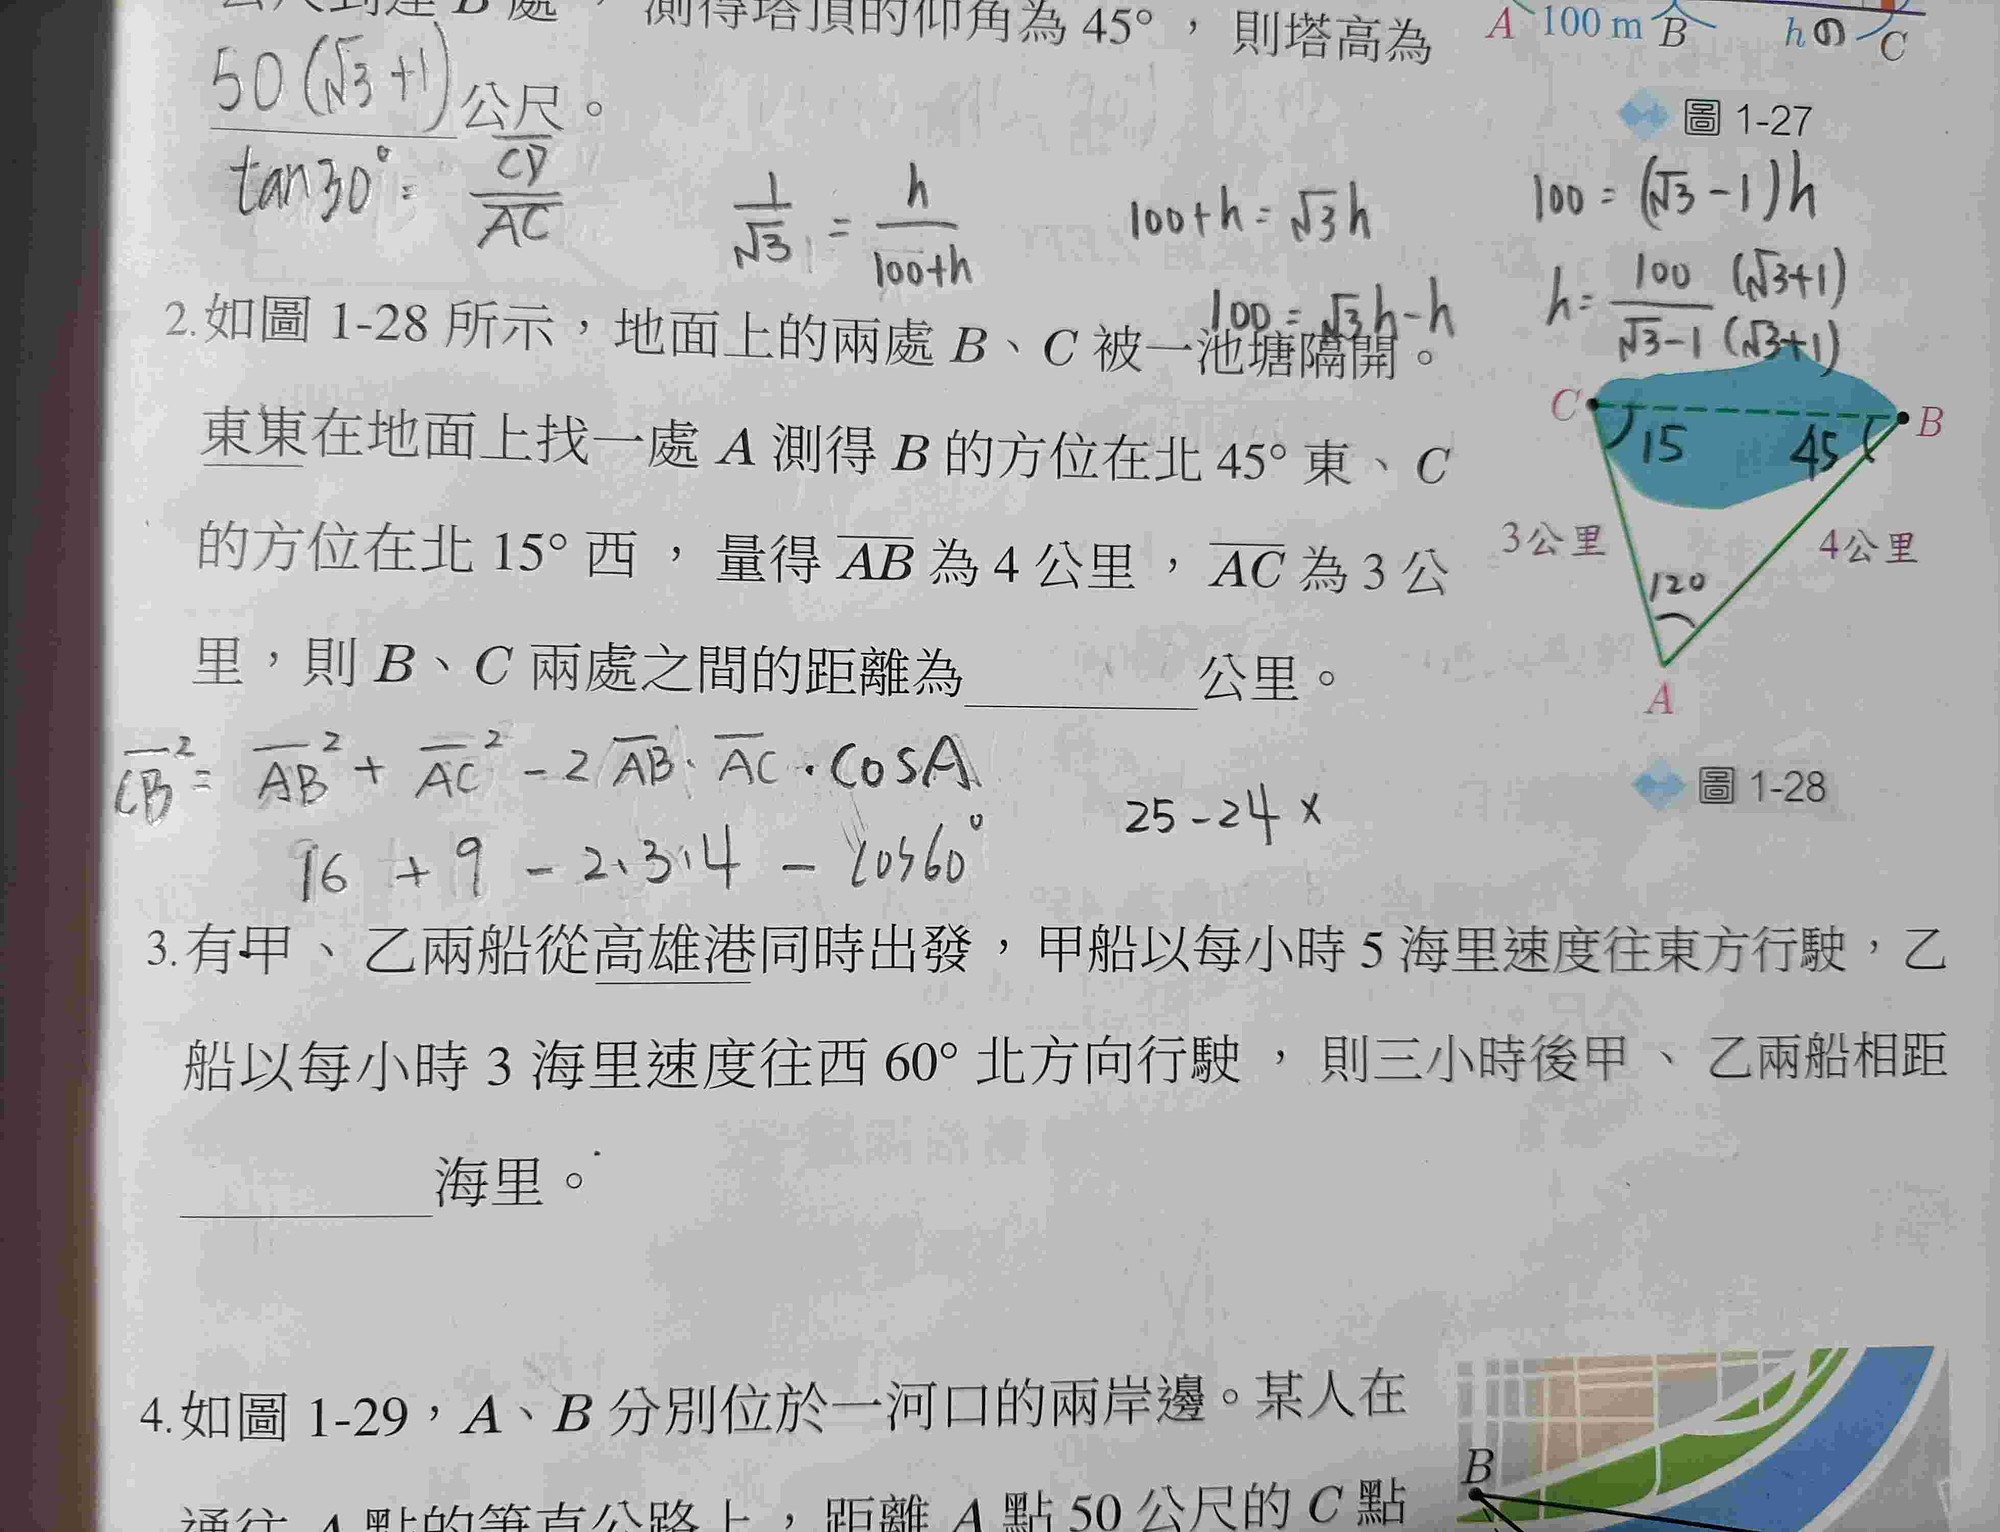 處,測得塔頂的仰角為 45°,則塔高為
A 100 m B h C
50(√3+1) 公尺。
圖 1-27
tan30° = CD/AC
1/√3 = h/(100+h)
100+h = √3h
100 = √3h-h
100 = (√3-1)h
h = 100 (√3+1) / √3-1 (√3+1)
2.如圖 1-28 所示,地面上的兩處 B、C 被一池塘隔開。
東東在地面上找一處 A 測得 B 的方位在北 45° 東、C
的方位在北 15° 西,量得 AB 為 4 公里,AC 為 3 公
里,則 B、C 兩處之間的距離為 公里。
C 15 45 B
3公里 4公里
120
A
圖 1-28
CB² = AB² + AC² - 2 AB · AC · cosA
16 + 9 - 2·3·4 - cos60°
25-24 ×
3.有甲、乙兩船從高雄港同時出發,甲船以每小時 5 海里速度往東方行駛,乙
船以每小時 3 海里速度往西 60° 北方向行駛,則三小時後甲、乙兩船相距
海里。
4.如圖 1-29,A、B 分別位於一河口的兩岸邊。某人在
通往 A 點的筆直公路上,距離 A 點 50 公尺的 C 點
B